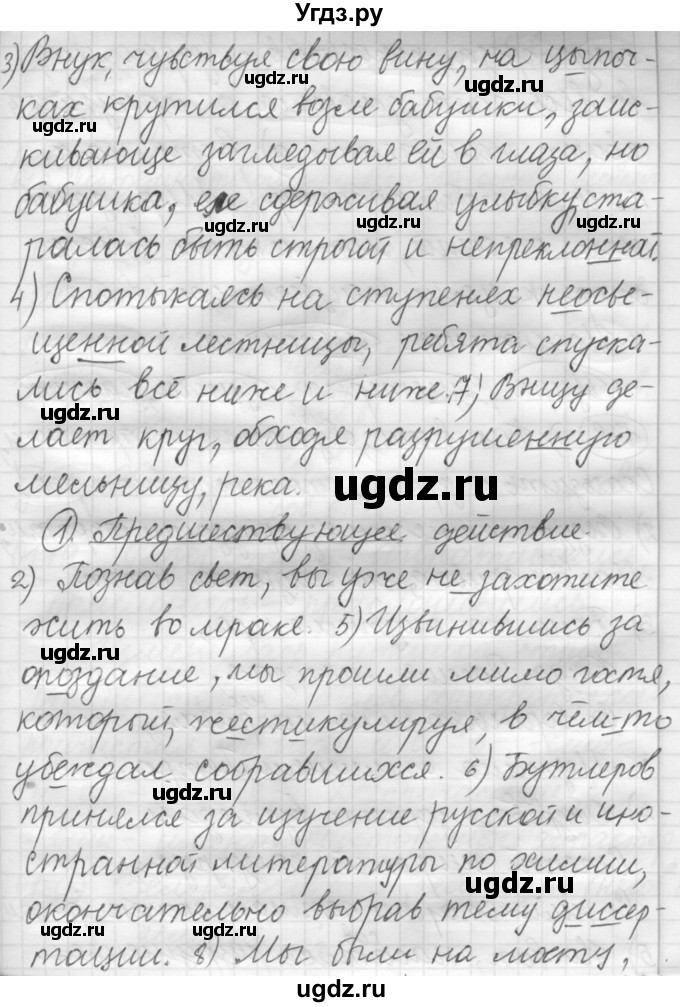 Угдз.ру
3) Внук, чувствуя свою вину, на цыпоч-
ugdz.ru ugdz.ru
ках крутился возле бабушки, заис-
ugdz.ru
кивающе заглядывая ей в глаза, но
ugdz.ru
бабушка, еле сдерживая улыбку, ста-
ugdz.ru
ралась быть строгой и непреклонной.
ugdz.ru
4) Спотыкаясь на ступенях неосве-
ugdz.ru
щенной лестницы, ребята спуска-
лись всё ниже и ниже. 7) Внизу де-
ugdz.ru
лает круг, обходя разрушенную
мельницу, река.
ugdz.ru
ugdz.ru
1. Предшествующее действие.
2) Познав свет, вы уже не захотите
ugdz.ru
жить во мраке. 5) Извинившись за
ugdz.ru
опоздание, мы прошли мимо гостя,
который, жестикулируя, в чём-то
убеждал собравшихся. 6) Бутлеров
ugdz.ru
принялся за изучение русской и ино-
странной литературы по химии,
ugdz.ru
окончательно выбрав тему диссер-
тации. 8) Мы были на мосту,
ugdz.ru